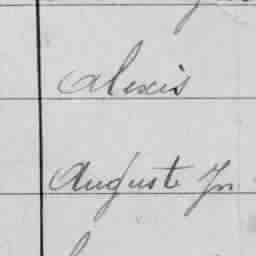 Alexis
August Jr